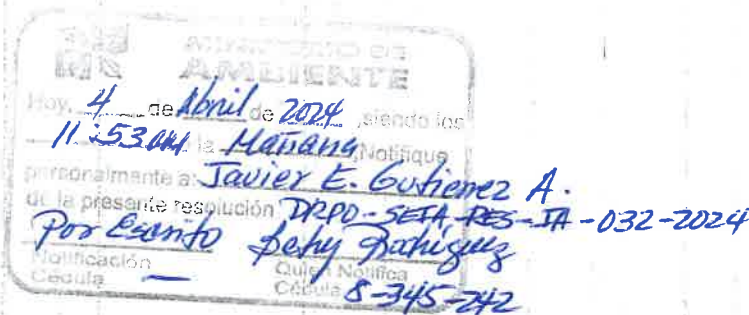 MINISTERIO DE
AMBIENTE
Hoy, 4 de Abril de 2024, siendo las
11:53 am de la Mañana, Notifique
personalmente a: Javier E. Gutierrez A.
de la presente resolución DRPO-SEIA-RES-IA-032-2024
Por Escrito Betzy Rodriguez
Notificación Quien Notifica
Cédula — Cédula 8-345-242